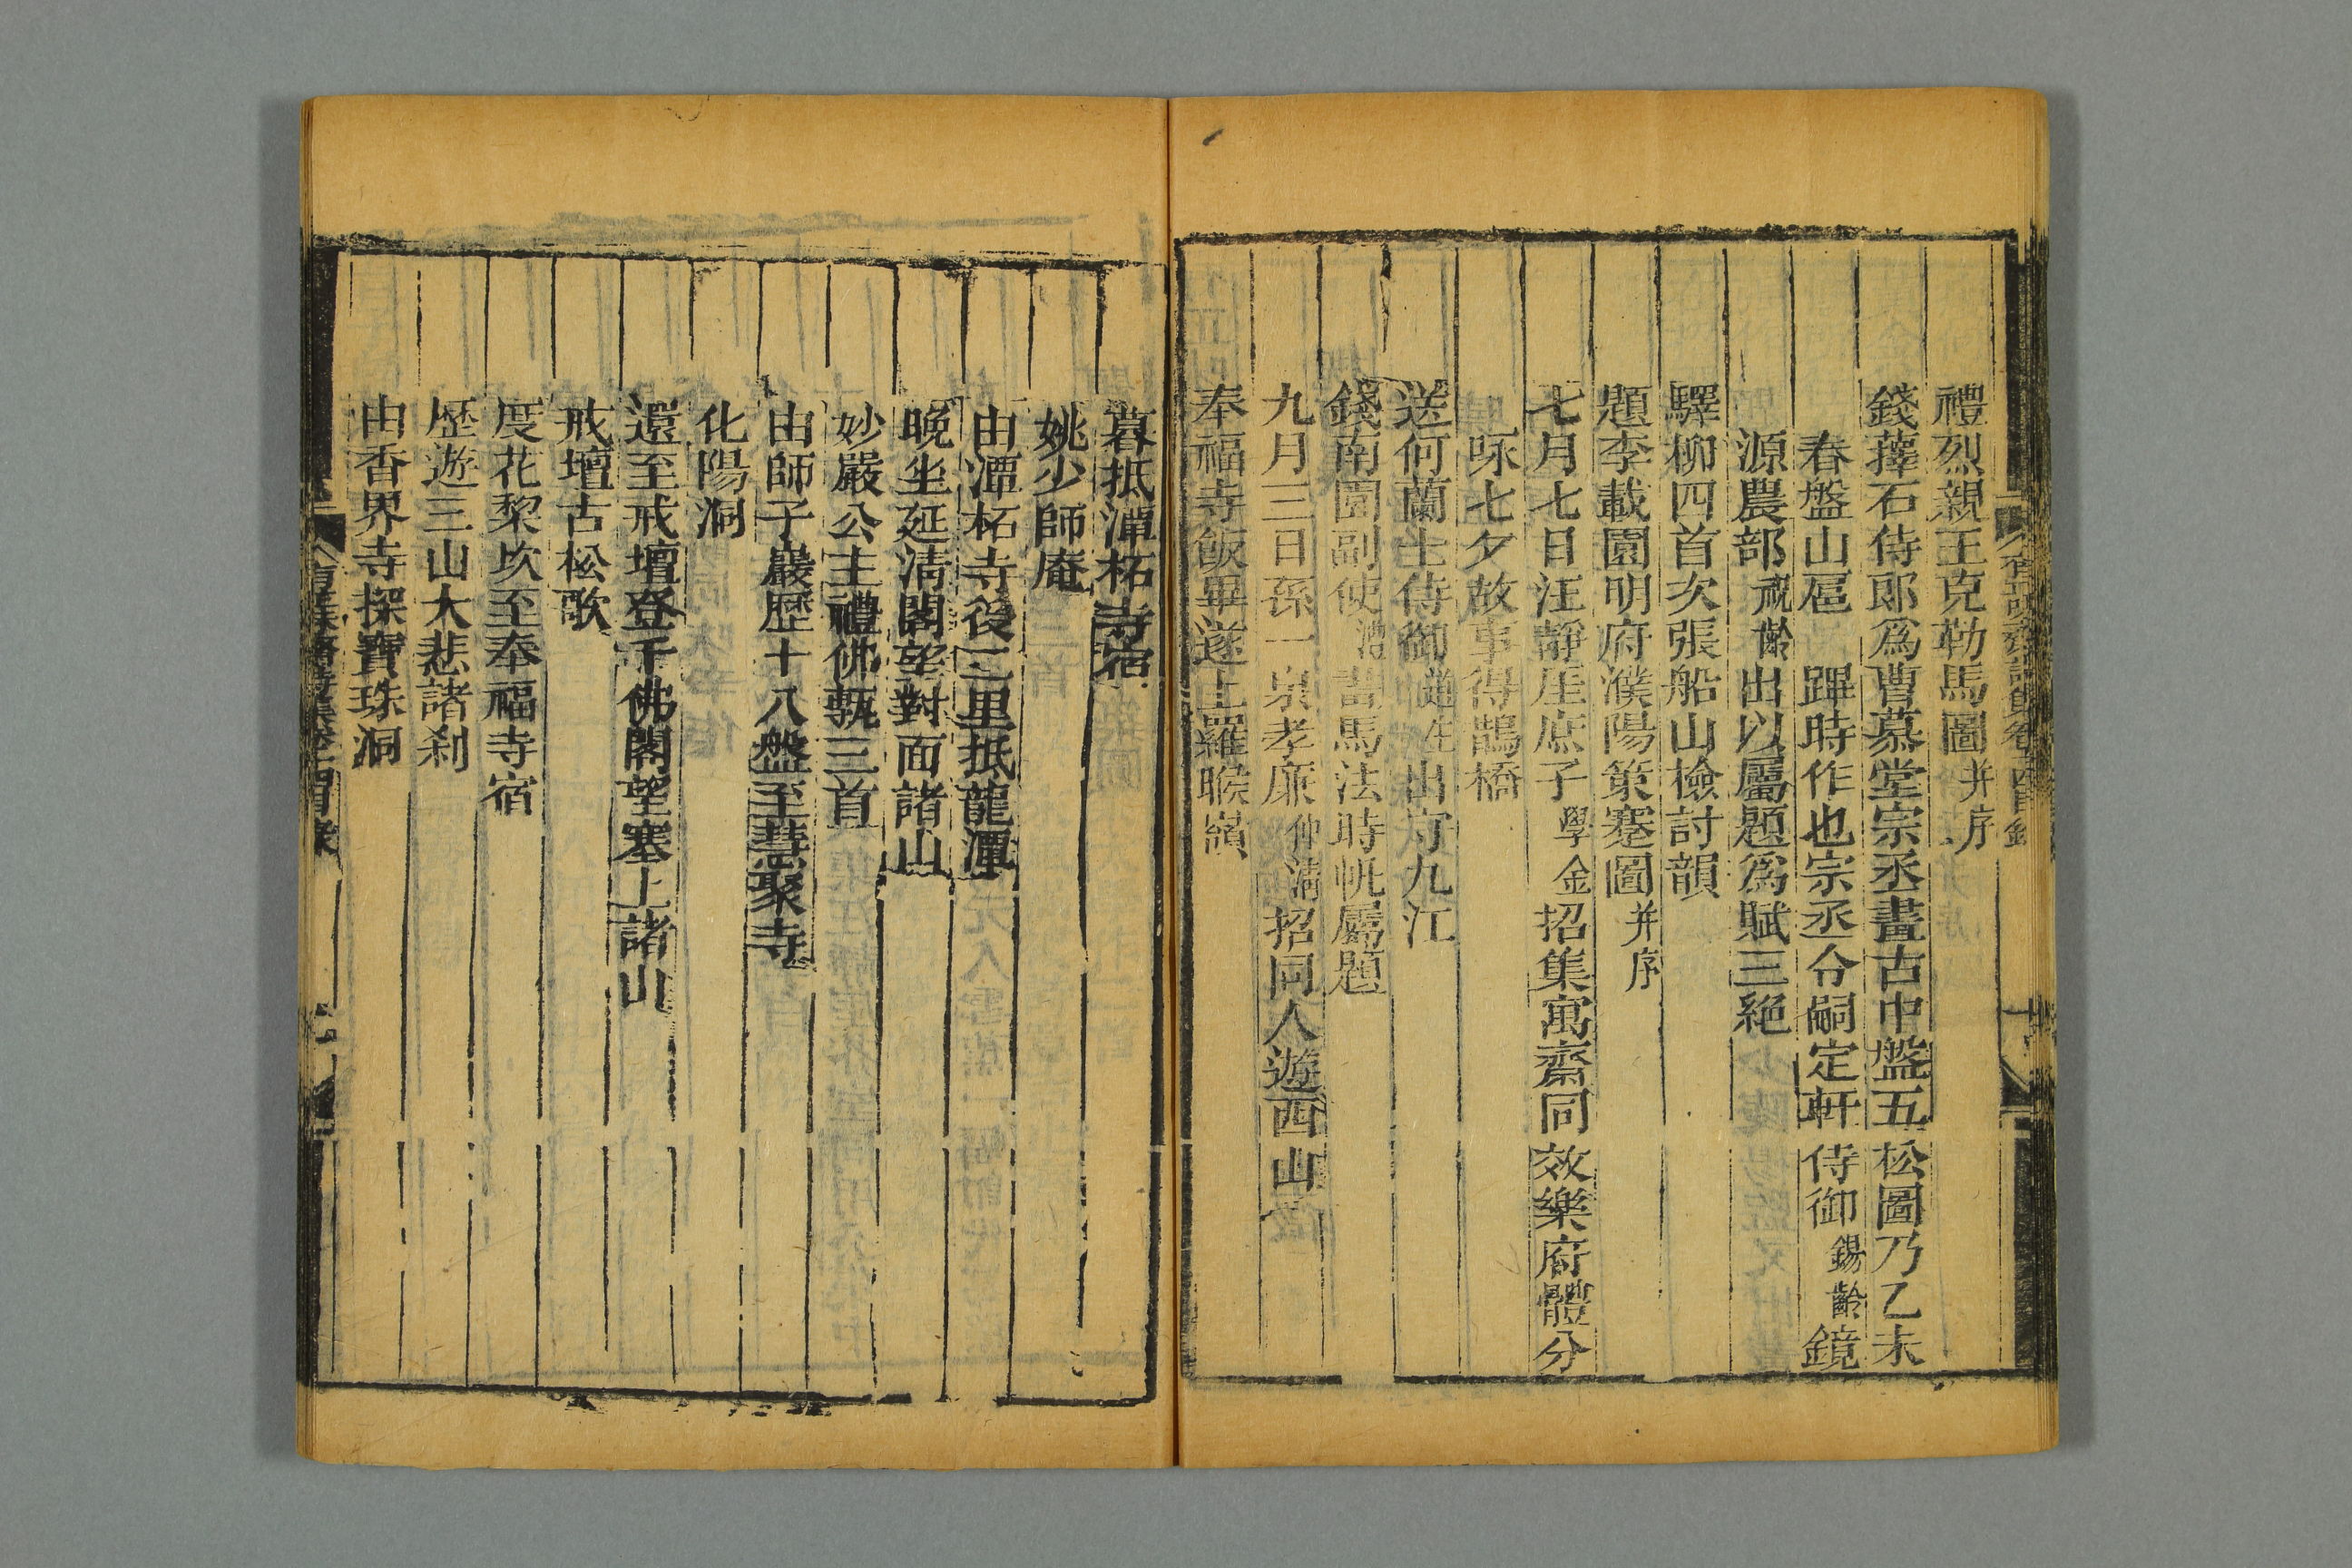 禮烈親王克勒馬圖并序
錢蘀石侍郎爲曹慕堂宗丞畫古中盤五松圖乃乙未
春盤山扈蹕時作也宗丞令嗣定軒侍御錫齡鏡
源農部祝齡出以屬題爲賦三絶
驛柳四首次張船山檢討韻
題李載園明府濮陽策蹇圖并序
七月七日汪靜厓庶子學金招集寓齋同效樂府體分
咏七夕故事得鵲橋
送何蘭士侍御道生出守九江
錢南園副使灃畫馬法時帆屬題
九月三日孫一泉孝廉仲清招同人遊西山
奉福寺飯畢遂上羅睺嶺
暮抵潭柘寺宿
姚少師庵
由潭柘寺後二里抵龍潭
晚坐延清閣望對面諸山
妙嚴公主禮佛甎三首
由師子巖歷十八盤至慧聚寺
化陽洞
還至戒壇登千佛閣望塞上諸山
戒壇古松歌
度花棃坎至奉福寺宿
歷遊三山大悲諸刹
由香界寺探寶珠洞